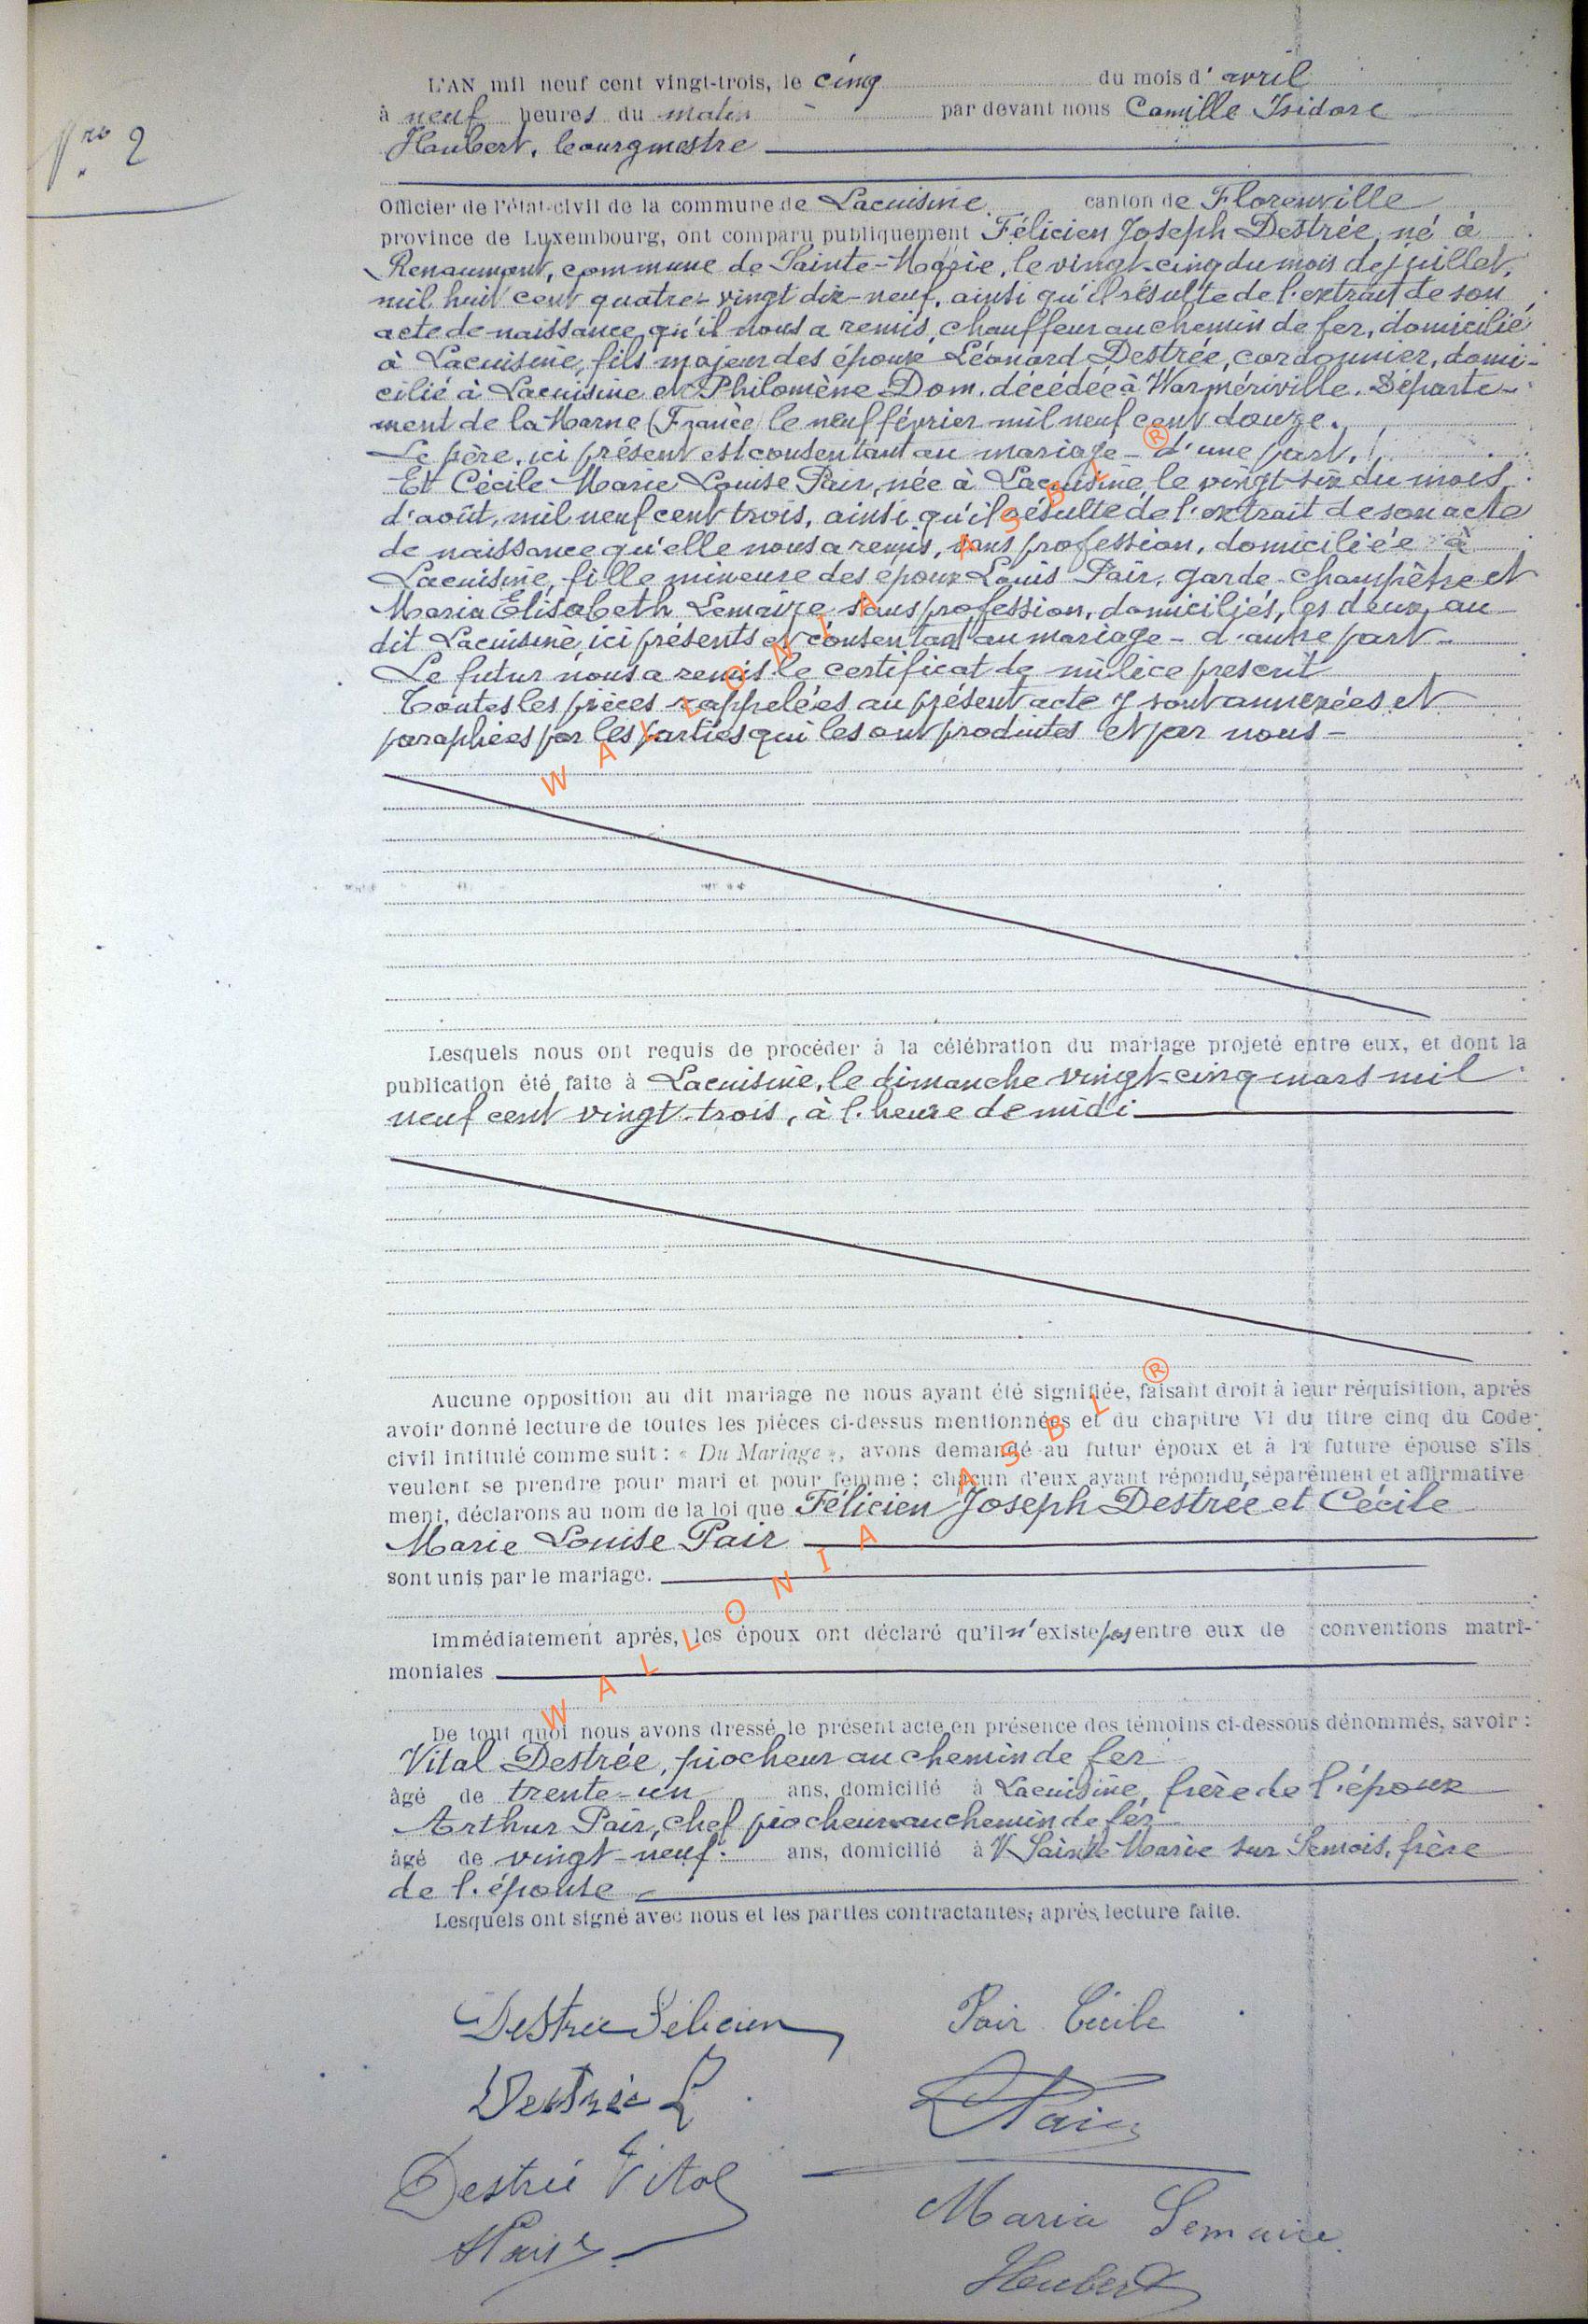 Nro 2
L'AN mil neuf cent vingt-trois, le cinq du mois d'avril
à neuf heures du matin - par devant nous Camille Isidore
Haubert, bourgmestre
Officier de l'état-civil de la commune de Lacuisine canton de Florenville
province de Luxembourg, ont comparu publiquement Félicien Joseph Destrée, né à
Renaumont, commune de Sainte-Marie, le vingt-cinq du mois de juillet,
mil huit cent quatre-vingt dix-neuf, ainsi qu'il résulte de l'extrait de son
acte de naissance qu'il nous a remis, chauffeur au chemin de fer, domicilié
à Lacuisine, fils majeur des époux Léonard Destrée, cordonnier, domi-
cilié à Lacuisine et Philomène Dom, décédée à Warmériville, Départe-
ment de la Marne (France) le neuf février mil neuf cent douze.
Le père, ici présent est consentant au mariage - d'une part,
Et Cécile Marie Louise Pair, née à Lacuisine, le vingt-six du mois
d'août, mil neuf cent trois, ainsi qu'il résulte de l'extrait de son acte
de naissance qu'elle nous a remis, sans profession, domiciliée à
Lacuisine, fille mineure des époux Louis Pair, garde-champêtre et
Maria Elisabeth Lemaire sans profession, domiciliés, les deux, au
dit Lacuisine, ici présents et consentant au mariage - d'autre part -
Le futur nous a remis le certificat de milice prescrit
Toutes les pièces rappelées au présent acte y sont annexées et
paraphées par les parties qui les ont produites et par nous -
Lesquels nous ont requis de procéder à la célébration du mariage projeté entre eux, et dont la
publication été faite à Lacuisine, le dimanche vingt-cinq mars mil
neuf cent vingt-trois, à l'heure de midi
Aucune opposition au dit mariage ne nous ayant été signifiée, faisant droit à leur réquisition, après
avoir donné lecture de toutes les pièces ci-dessus mentionnées et du chapitre VI du titre cinq du Code
civil intitulé comme suit : « Du Mariage », avons demandé au futur époux et à la future épouse s'ils
veulent se prendre pour mari et pour femme ; chacun d'eux ayant répondu séparément et affirmative
ment, déclarons au nom de la loi que Félicien Joseph Destrée et Cécile
Marie Louise Pair
sont unis par le mariage.
Immédiatement après, les époux ont déclaré qu'il n'existe pas entre eux de conventions matri-
moniales
De tout quoi nous avons dressé le présent acte en présence des témoins ci-dessous dénommés, savoir :
Vital Destrée, piocheur au chemin de fer
âgé de trente-un ans, domicilié à Lacuisine, frère de l'époux
Arthur Pair, chef piocheur au chemin de fer
âgé de vingt-neuf ans, domicilié à Sainte Marie sur Semois, frère
de l'épouse
Lesquels ont signé avec nous et les parties contractantes, après lecture faite.
Destrée Félicien Pair Cécile
Destrée L Pair
Destrée Vital Maria Lemaire
A Pair Haubert
WALLONIA ASBL ®
WALLONIA ASBL ®